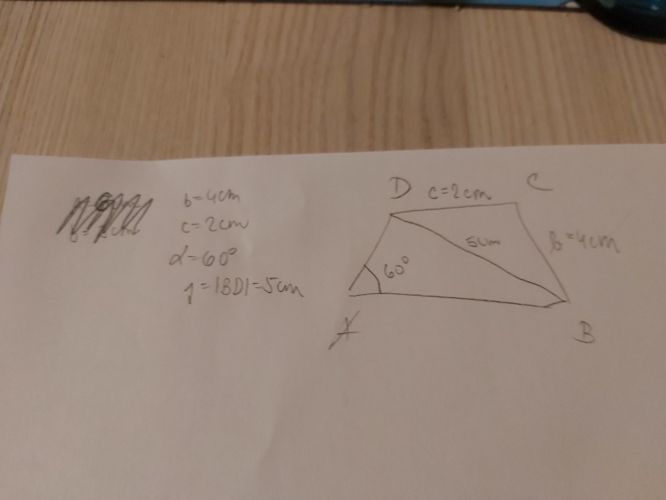 b=4cm
c=2cm
α=60°
f=|BD|=5cm
D c=2cm C
5cm
b=4cm
60°
A
B